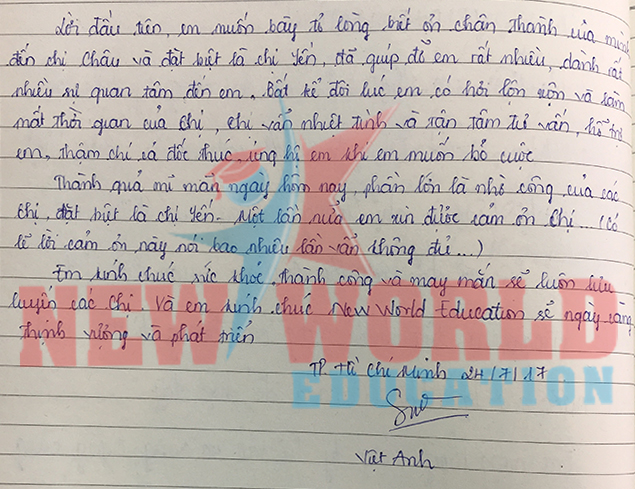 Lời đầu tiên, em muốn bày tỏ lòng biết ơn chân thành của mình
đến chị Châu và đặt biệt là chị Yến, đã giúp đỡ em rất nhiều, dành rất
nhiều sự quan tâm đến em. Bất kể đôi lúc em có hơi lộn xộn và làm
mất thời quan của chị, chị vẫn nhiệt tình và tận tâm tư vấn, hỗ trợ
em, thậm chí cả đốc thúc, ủng hộ em khi em muốn bỏ cuộc
Thành quả mĩ mãn ngày hôm nay, phần lớn là nhờ công của các
chị, đặt biệt là chị Yến. Một lần nữa em xin được cảm ơn chị... (có
lẽ lời cảm ơn này nói bao nhiêu lần vẫn không đủ...)
Em kính chúc sức khỏe, thành công và may mắn sẽ luôn lưu
luyến các chị. Và em kính chúc New World Education sẽ ngày càng
thịnh vượng và phát triển
NEW WORLD
EDUCATION
TP Hồ Chí Minh 24/7/17
Việt Anh